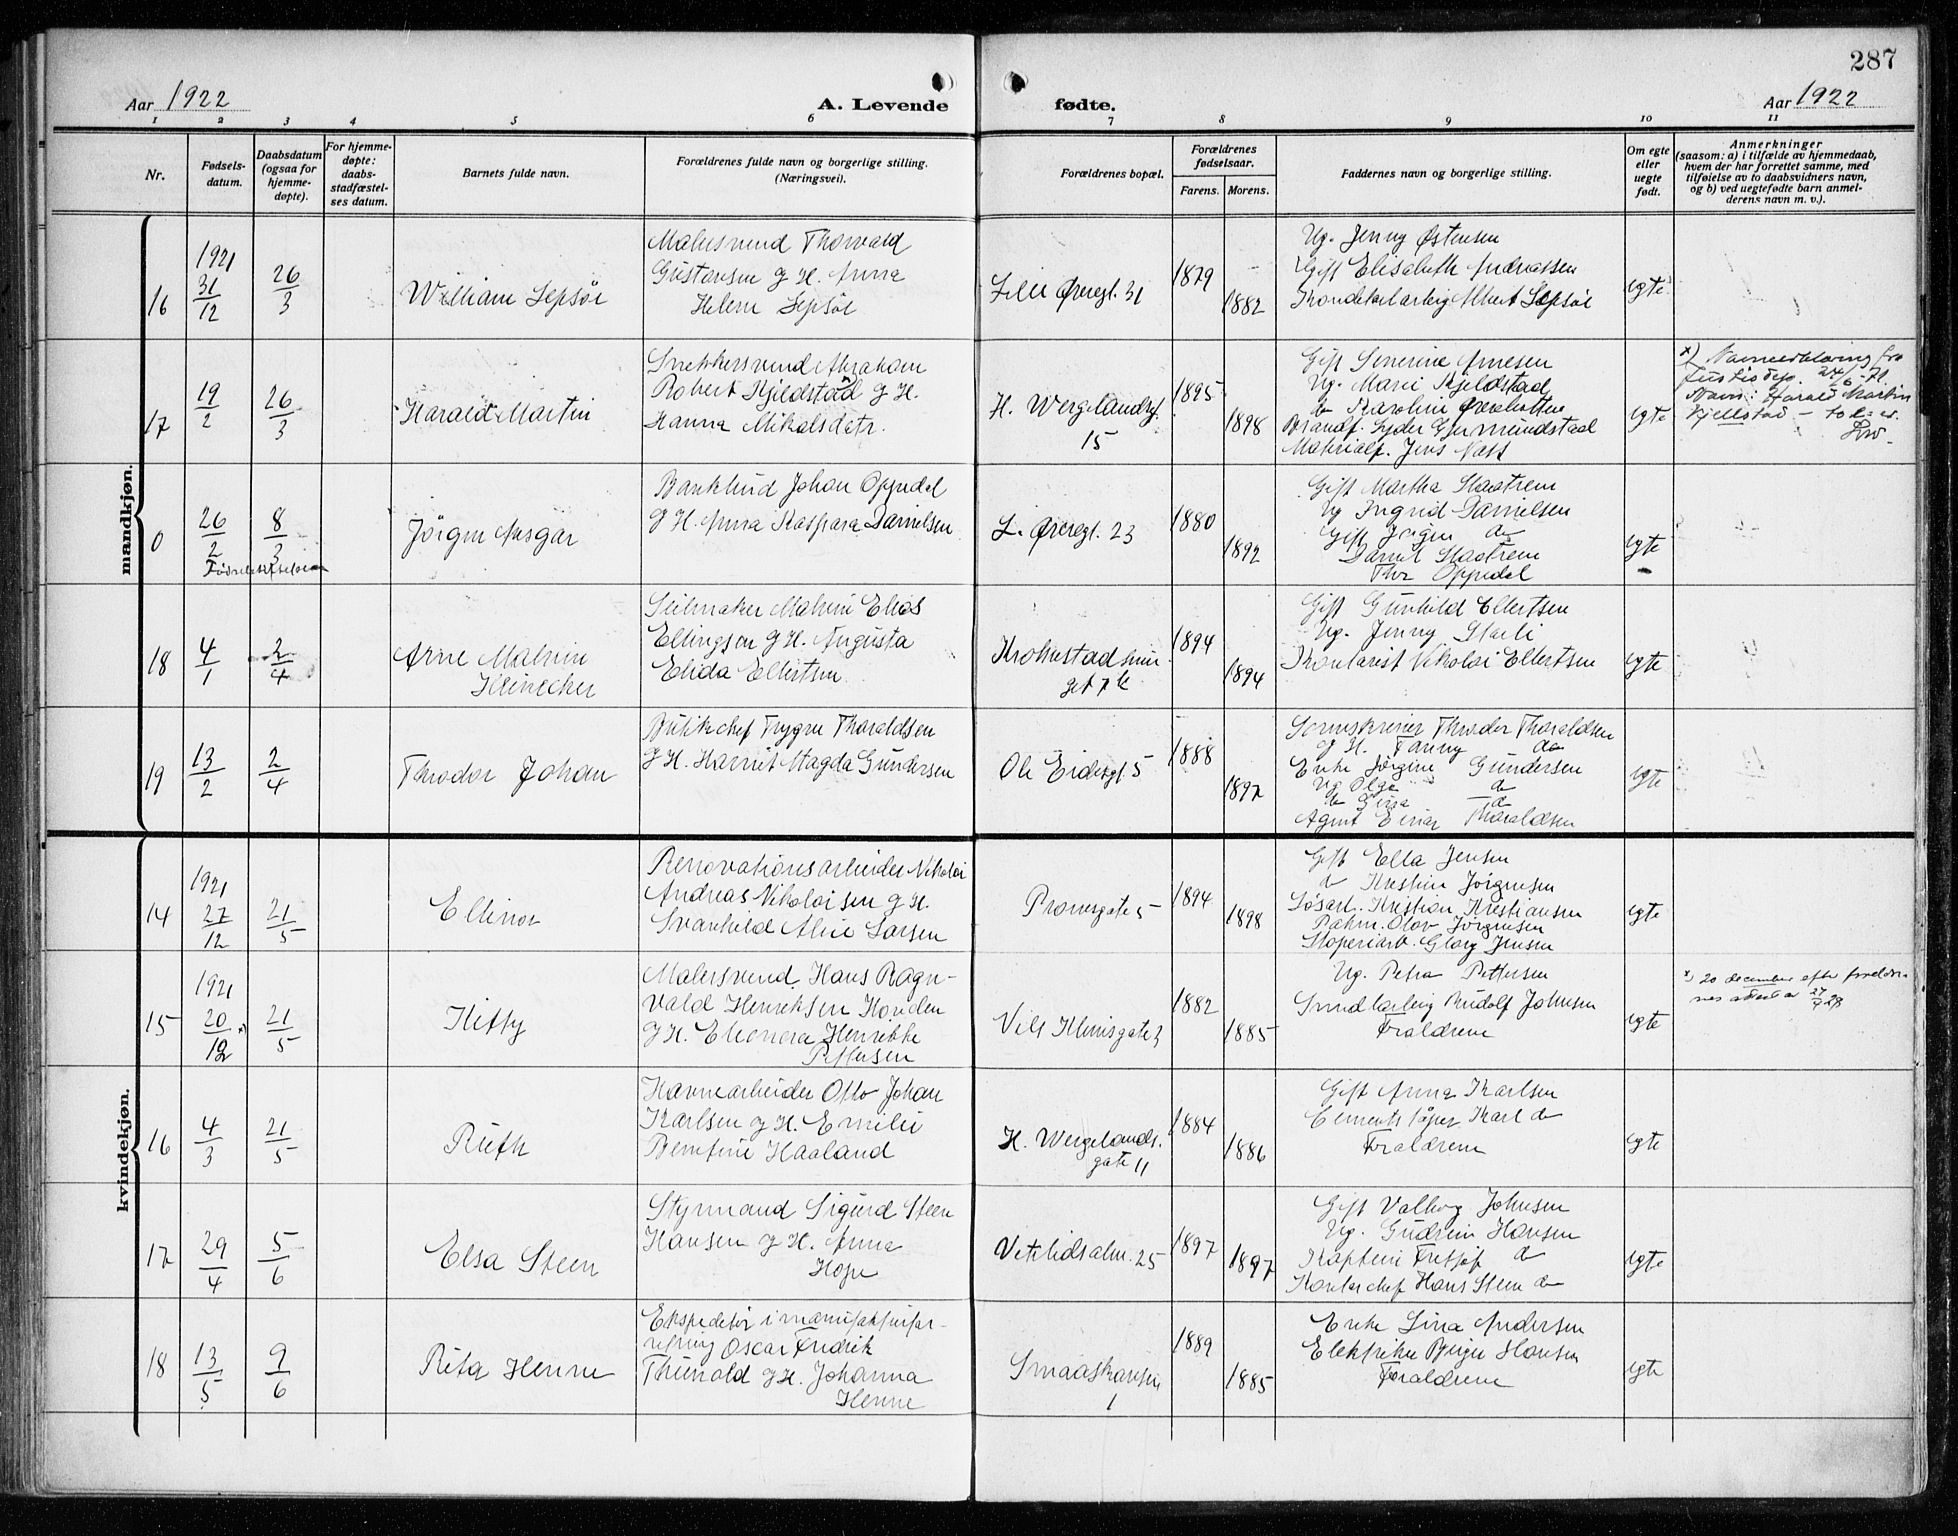 287
Aar 1922
A. Levende
fødte.
Aar 1922
1 2 3 4 5 6 7 8 9 10 11
Nr.
Fødsels-
datum.
Daabsdatum
(ogsaa for
hjemme-
døpte).
For hjemme-
døpte:
daabs-
stadfæstel-
ses datum.
Barnets fulde navn.
Forældrenes fulde navn og borgerlige stilling.
(Næringsvei).
Forældrenes bopæl.
Forældrenes
fødselsaar.
Farens. Morens.
Faddernes navn og borgerlige stilling.
Om egte
eller
uegte
født.
Anmerkninger
(saasom: a) i tilfælde av hjemmedaab,
hvem der har forrettet samme, med
tilføielse av to daabsvidners navn,
og b) ved uegtefødte barn anmel-
derens navn m. v.).
mandkjøn.
16
1921
31/12
26/3
William Sepsøe
Malersvend Thorvald
Gustavsen g H. Anna
Helene Sepsøe
Lille Øvregt. 31
1879
1882
Ug. Jenny Østensen
Gift Elisabeth Andreassen
Albert Sepsøe
egte
17
19/2
26/3
Harald Martin
Snekkersvend Abraham
Robert Kjeldstad g H.
Hanna Mikalsdatr.
H. Wergelandsgt.
15
1895
1898
Gift Severine Arnesen
Ug. Marie Kjeldstad
do Karoline
Brandf. Lyder Gjermundstad
Materialf. Jens
egte
x) Navneerklæring fra
Justisdep. 24/6-71.
Navn: Harald Martin
Kjellstad
0
26/2
8/3
Jörgen Ansgar
Bankbud Johan Oppedal
g H. Anna Kaspara Danielsen
L. Øvregt. 23
1880
1892
Gift Martha
Ug Ingrid Danielsen
Gift Jörgen do
Daniel
Thor Oppedal
egte
18
4/1
2/4
Arne Malvin
Heinecker
Seilmaker Malvin Elias
Ellingsen g H. Augusta
Elida Ellertsen
1894
1894
Gift Gunhild Ellertsen
Ug. Jenny
Kontorist Nikolai Ellertsen
egte
19
13/2
2/4
Theodor Johan
Butikchef Trygve Tharaldsen
g H. Harriet Magda Gundersen
Ole Eidesgt 5
1888
1897
Sorenskriver Theodor Tharaldsen
g H. Fanny do
Enke Jörgine Gundersen
Ug Olga do
do do
Agent Einar Tharaldsen
egte
kvindekjøn.
14
1921
27/12
21/5
Ellinor
Renovationsarbeider Nikolai
Andreas Nikolaisen g H.
Svanhild Alice Larsen
Pronsgate 5
1894
1898
Gift Ella Jensen
do Kristine Jørgensen
Løsarb. Kristian Kristiansen
Olav Jørgensen
Georg Jensen
egte
15
1921
20/12 x)
21/5
Kitty
Malersvend Hans Ragn-
vald Henriksen
g H. Eleonora Henrikke
Pettersen
1882
1885
Ug. Petra Pettersen
Rudolf Johnsen
Forældrene
egte
x) 20 december efter foreldre-
nes attest av 27/7 28
16
4/3
21/5
Ruth
Havnearbeider Otto Johan
Karlsen g H. Emilie
Berntine Haaland
H. Wergelands.
gate 11
1884
1886
Gift Anna Karlsen
Cementstøper Karl do
Forældrene
egte
17
29/4
5/6
Elsa Steen
Styrmand Sigurd Steen
Hansen g H. Anna
Hope
Vetrlidsalm. 25
1897
1897
Gift Valborg Johnsen
Ug. Gudrun Hansen
Kaptein Fretjof do
Kontorchef Hans Steen do
egte
18
13/5
9/6
Rita Henne
Ekspeditør i manufakturfor-
retning Oscar Fredrik
Thunold g H. Johanna
Henne
Smaaskansen
1
1889
1885
Enke Lina Andersen
Elektriker Birger Hansen
Forældrene
egte